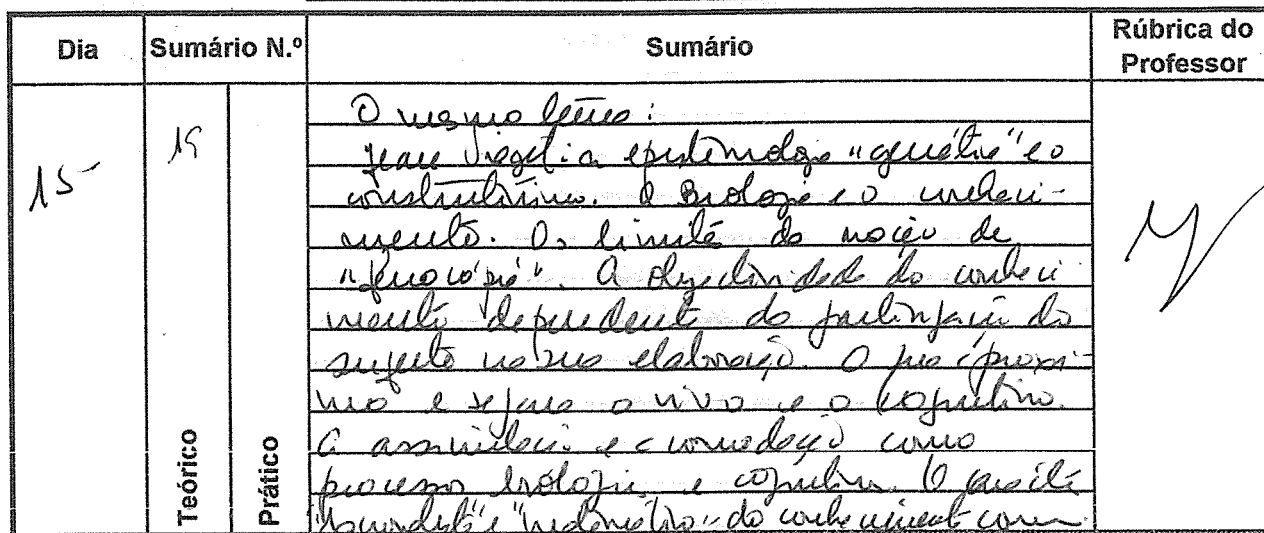 Dia Sumário N.º Sumário Rúbrica do Professor
15 19 Teórico Prático
O mesmo tema:
Jean Piaget: a epistemologia "genética" e o
construtivismo. A Biologia e o conheci-
mento. Os limites da noção de
"fenocópia". A objectividade do conheci
mento dependente da participação do
sujeito na sua elaboração. O que aproxi-
ma e separa o vivo e o cognitivo.
A assimilação e acomodação como
processos biológicos e cognitivos. O
do conhecimento como